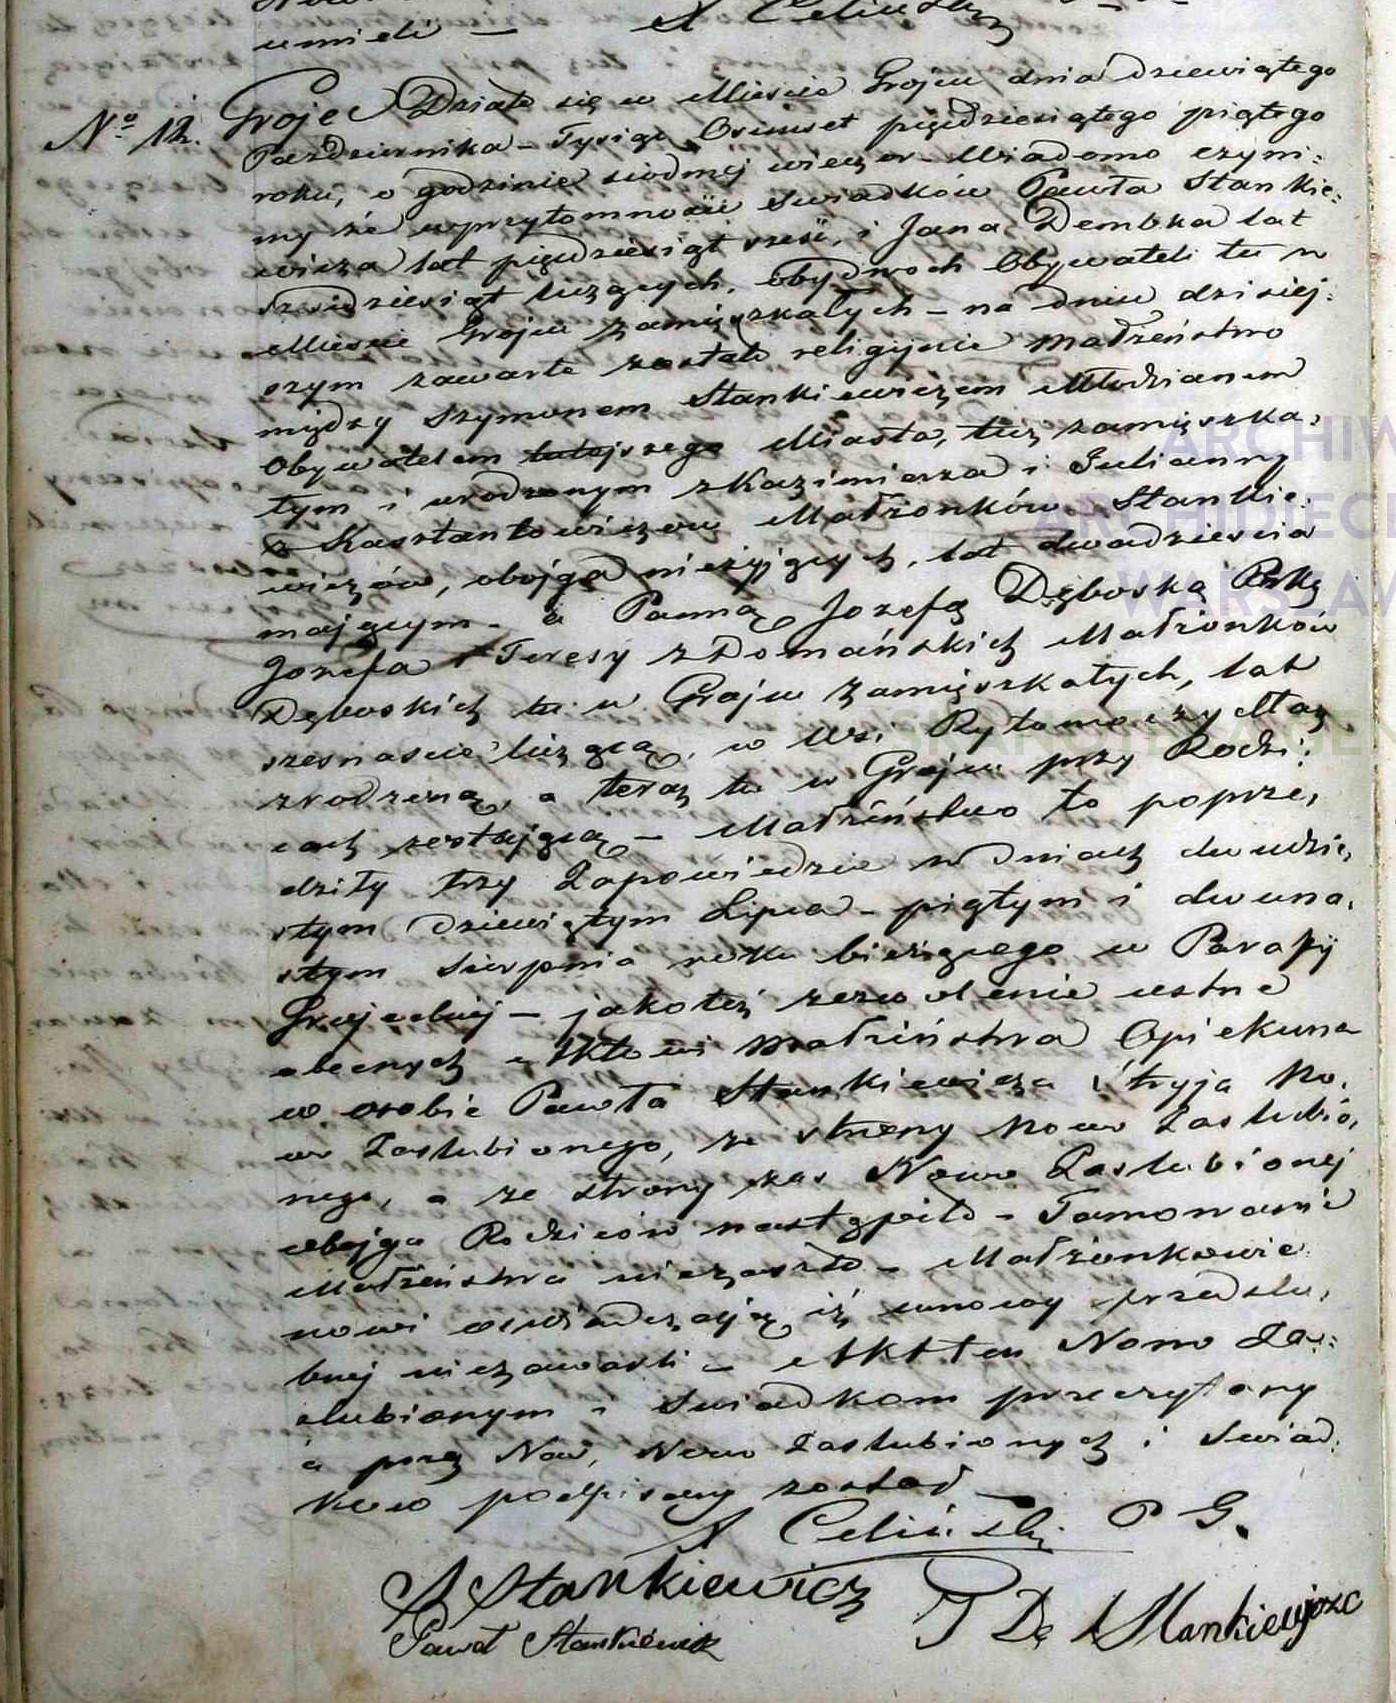 umieli — A Celiński
No 12. Grojec Działo się w Mieście Grojcu dnia dziewiątego
Pazdziernika – Tysiąc Osimset pięćdziesiątego piątego
roku, o godzinie siodmej wieczor – Wiadomo czyni:
my że wprzytomności Swiadków Pawła Stankie:
wicza lat pięćdziesiąt sześć, i Jana Dembka lat
sześćdziesiąt liczących, obydwoch Obywateli tu w
Mieście Grojcu zamięszkałych – na dniu dzisiej:
szym zawarte zostało religijnie Małżeństwo
między Szymonem Stankiewiczem Młodzianem
Obywatelem tutejszego Miasta, tuż zamięszka,
łym i urodzonym z Kazimierza i Julianny
z Kasztantowiczow Małżonków Stankie:
wiczów, obojga nieżyjących, lat dwadzieścia
mającym – a Panną Jozefą Dęboską Córką
Jozefa i Teresy z Domańskich Małżonków
Dęboskich tu w Grojcu zamięszkałych, lat
szesnaście liczącą, w Wsi Rytomoczydłaz
zrodzoną, a teraz tu w Grojcu przy Rodzi:
cach zostającą – Małżeństwo to poprze,
dziły trzy Zapowiedzie w Dniach dwudzie,
stym Dziewiątym Lipca – piątym i dwuna,
stym Sierpnia roku bieżącego w Parafij
Grojeckiej – jakoteż zezwolenie ustne
obecnych Aktowi Małżeństwa Opiekuna
w osobie Pawła Stankiewicza Stryja No,
wo Zaslubionego, ze strony Nowo Zaslubio,
nego, a ze strony zas Nowo Zaslubionej
obojga Rodziców nastąpiło – Tamowanie
Małżeństwa niezaszło – Małżonkowie
nowi oswiadczają iż umowy przedslu,
bnej niezawarli – Akt ten Nowo Za:
slubionym i Swiadkom przeczytany
a przez Nas, Nowo Zaslubionych i Swiad:
kow podpisany został –
A Celiński P G.
S Stankiewicz J Dę Stankiewjozc
Paweł Stankiewicz
ARCHIW
ARCHIDIEC
WARSZAW